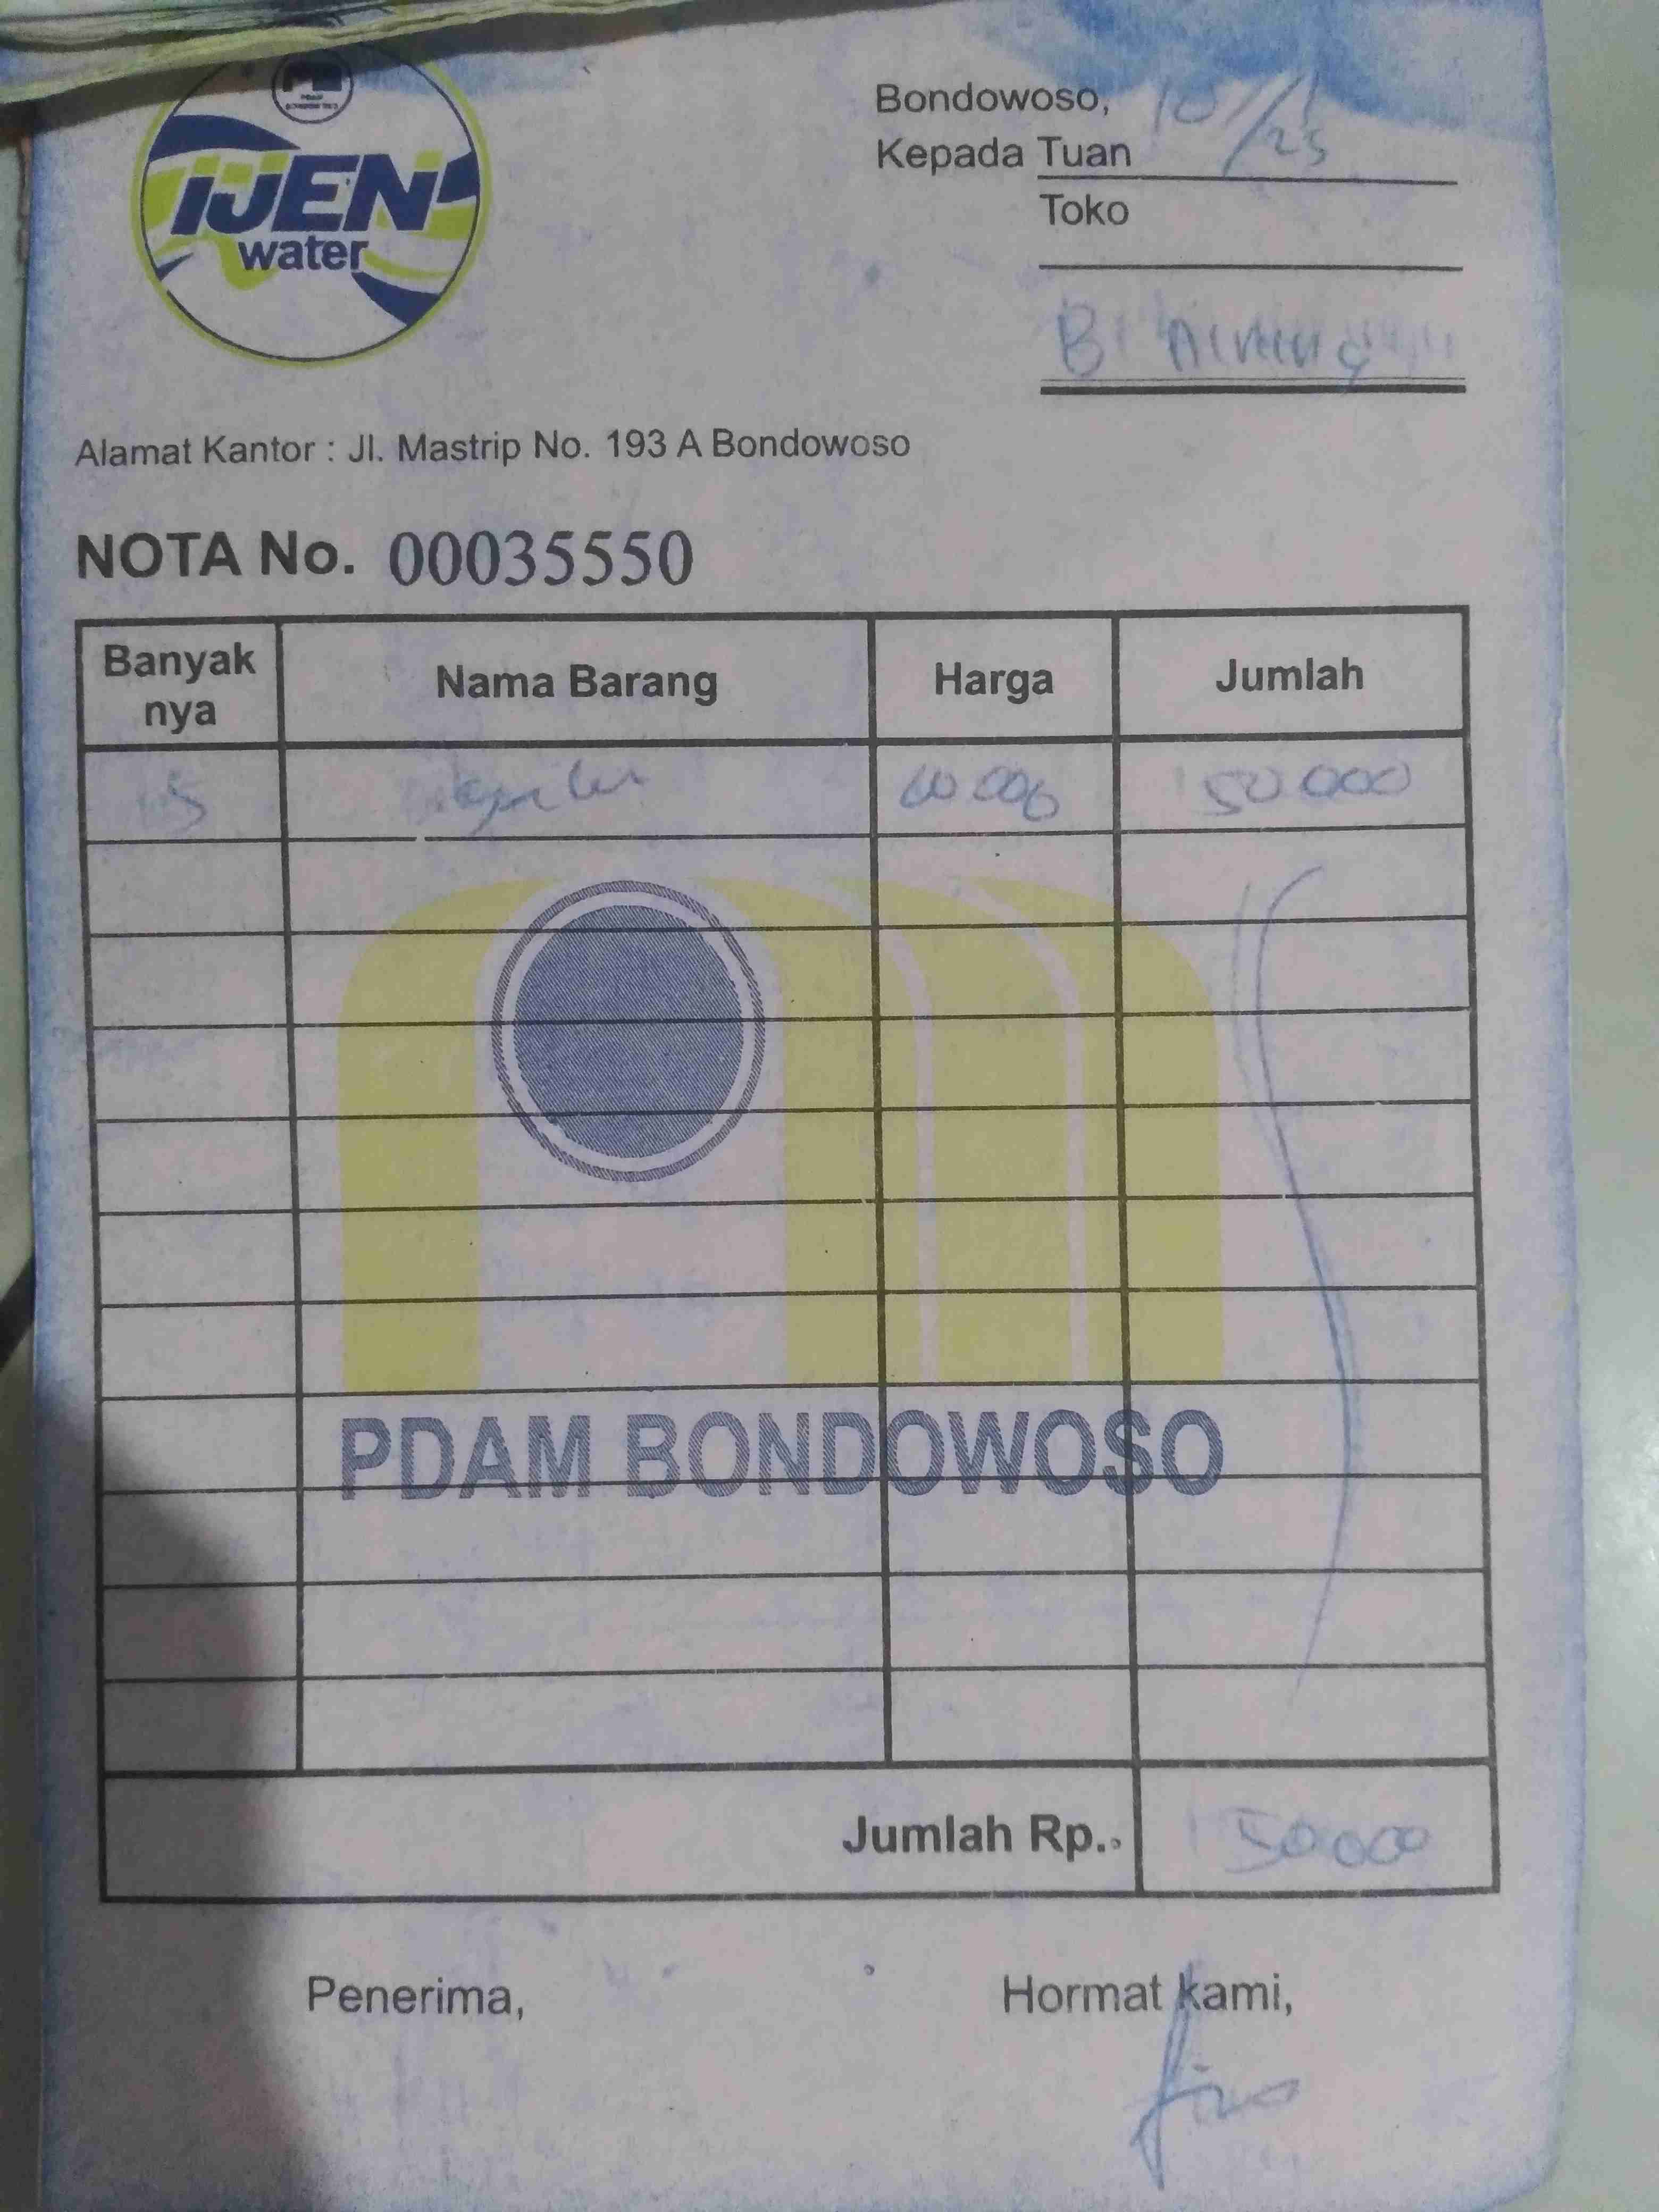 iJEN
water
Bondowoso, 10/1
/25
Kepada Tuan
Toko
B
Alamat Kantor : Jl. Mastrip No. 193 A Bondowoso
NOTA No. 00035550
Banyak nya Nama Barang Harga Jumlah
5 10 000 50 000
PDAM BONDOWOSO
Jumlah Rp.. 50 000
Penerima, Hormat kami,